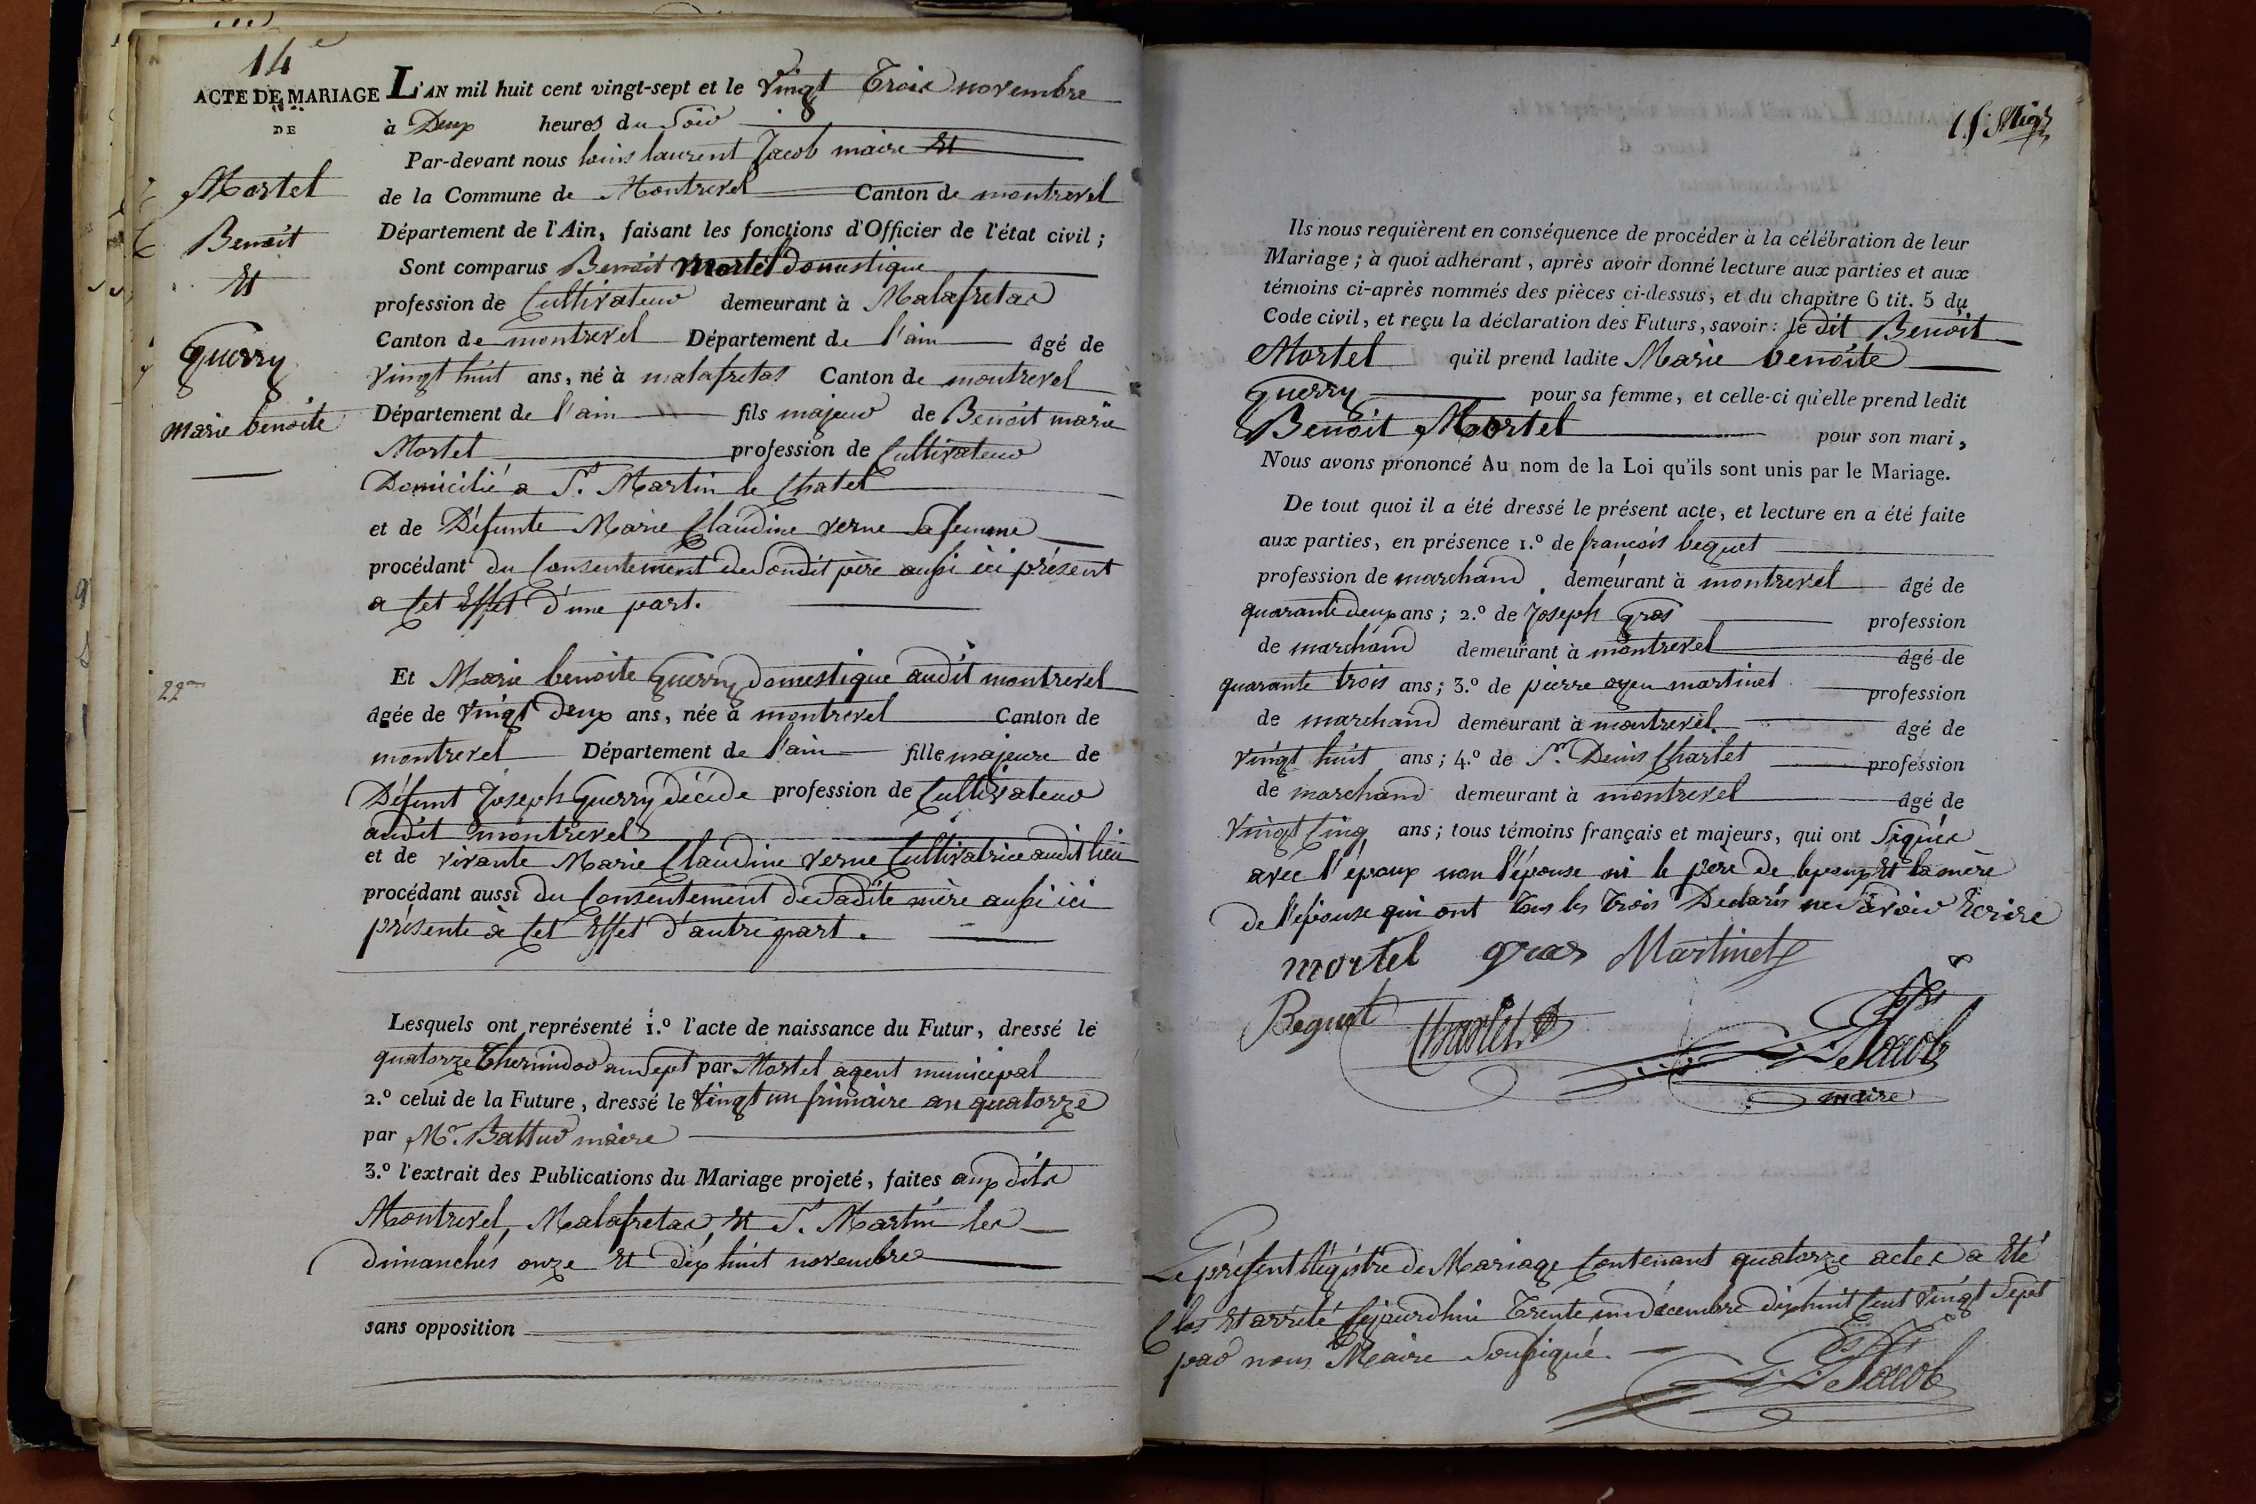 14e
ACTE DE MARIAGE
DE
Mortel
Benoit
Et
Guerry
marie benoite
22
L'AN mil huit cent vingt-sept et le Vingt Trois novembre
à Deux heures du Soir
Par-devant nous louis laurent Jacob maire Et
de la Commune de Montrevel Canton de montrevel
Département de l'Ain, faisant les fonctions d'Officier de l'état civil ;
Sont comparus Benoit Mortel domestique
profession de Cultivateur demeurant à Malafretas
Canton de montrevel Département de l'ain âgé de
Vingt huit ans, né à malafretas Canton de montrevel
Département de l'ain fils majeur de Benoit marie
Mortel profession de Cultivateur
Domicilié a St. Martin le Chatel
et de Défunte Marie Claudine Verne Sa femme
procédant du Consentement de Sondit père aussi ici présent
a Cet Effet d'une part.
Et Marie benoite Guerry domestique audit montrevel
âgée de Vingt Deux ans, née à montrevel Canton de
montrevel Département de l'ain fille majeure de
Défunt Joseph Guerry décédé profession de Cultivateur
audit montrevel
et de vivante Marie Claudine Verne Cultivatrice audit lieu
procédant aussi du Consentement de Sadite mère aussi ici
présente à Cet Effet d'autre part.
Lesquels ont représenté 1.º l'acte de naissance du Futur, dressé le
quatorze Thermidor an Sept par Mortel agent municipal
2.º celui de la Future, dressé le Vingt un frimaire an quatorze
par Mr. Battur maire
3.º l'extrait des Publications du Mariage projeté, faites aux dits
Montrevel, Malafretas, Et St. Martin les
dimanches onze Et dix huit novembre
sans opposition
Ils nous requièrent en conséquence de procéder à la célébration de leur
Mariage ; à quoi adhérant, après avoir donné lecture aux parties et aux
témoins ci-après nommés des pièces ci-dessus, et du chapitre 6 tit. 5 du
Code civil, et reçu la déclaration des Futurs, savoir : le dit Benoit
Mortel qu'il prend ladite Marie benoite
Guerry pour sa femme, et celle-ci qu'elle prend ledit
Benoit Mortel pour son mari,
Nous avons prononcé Au nom de la Loi qu'ils sont unis par le Mariage.
De tout quoi il a été dressé le présent acte, et lecture en a été faite
aux parties, en présence 1.º de francois bequet
profession de marchand demeurant à montrevel âgé de
quarante deux ans ; 2.º de Joseph Gras profession
de marchand demeurant à montrevel âgé de
quarante trois ans ; 3.º de pierre martinet profession
de marchand demeurant à montrevel âgé de
Vingt huit ans ; 4.º de Sr. Denis Charlet profession
de marchand demeurant à montrevel âgé de
Vingt Cinq ans ; tous témoins français et majeurs, qui ont Signés
avec l'époux non l'épouse ni le père de lepoux Et la mère
de l'épouse qui ont tous les trois Declarés ne Savoir Ecrire
mortel gras Martinet
Bequet Charlet Jacob
maire
Le présent Régistre de Mariage Contenant quatorze actes a Eté
Clos Et arrêté Cejourdhui Trente un décembre dix huit Cent Vingt Sept
par nous Maire Soussigné.
Jacob